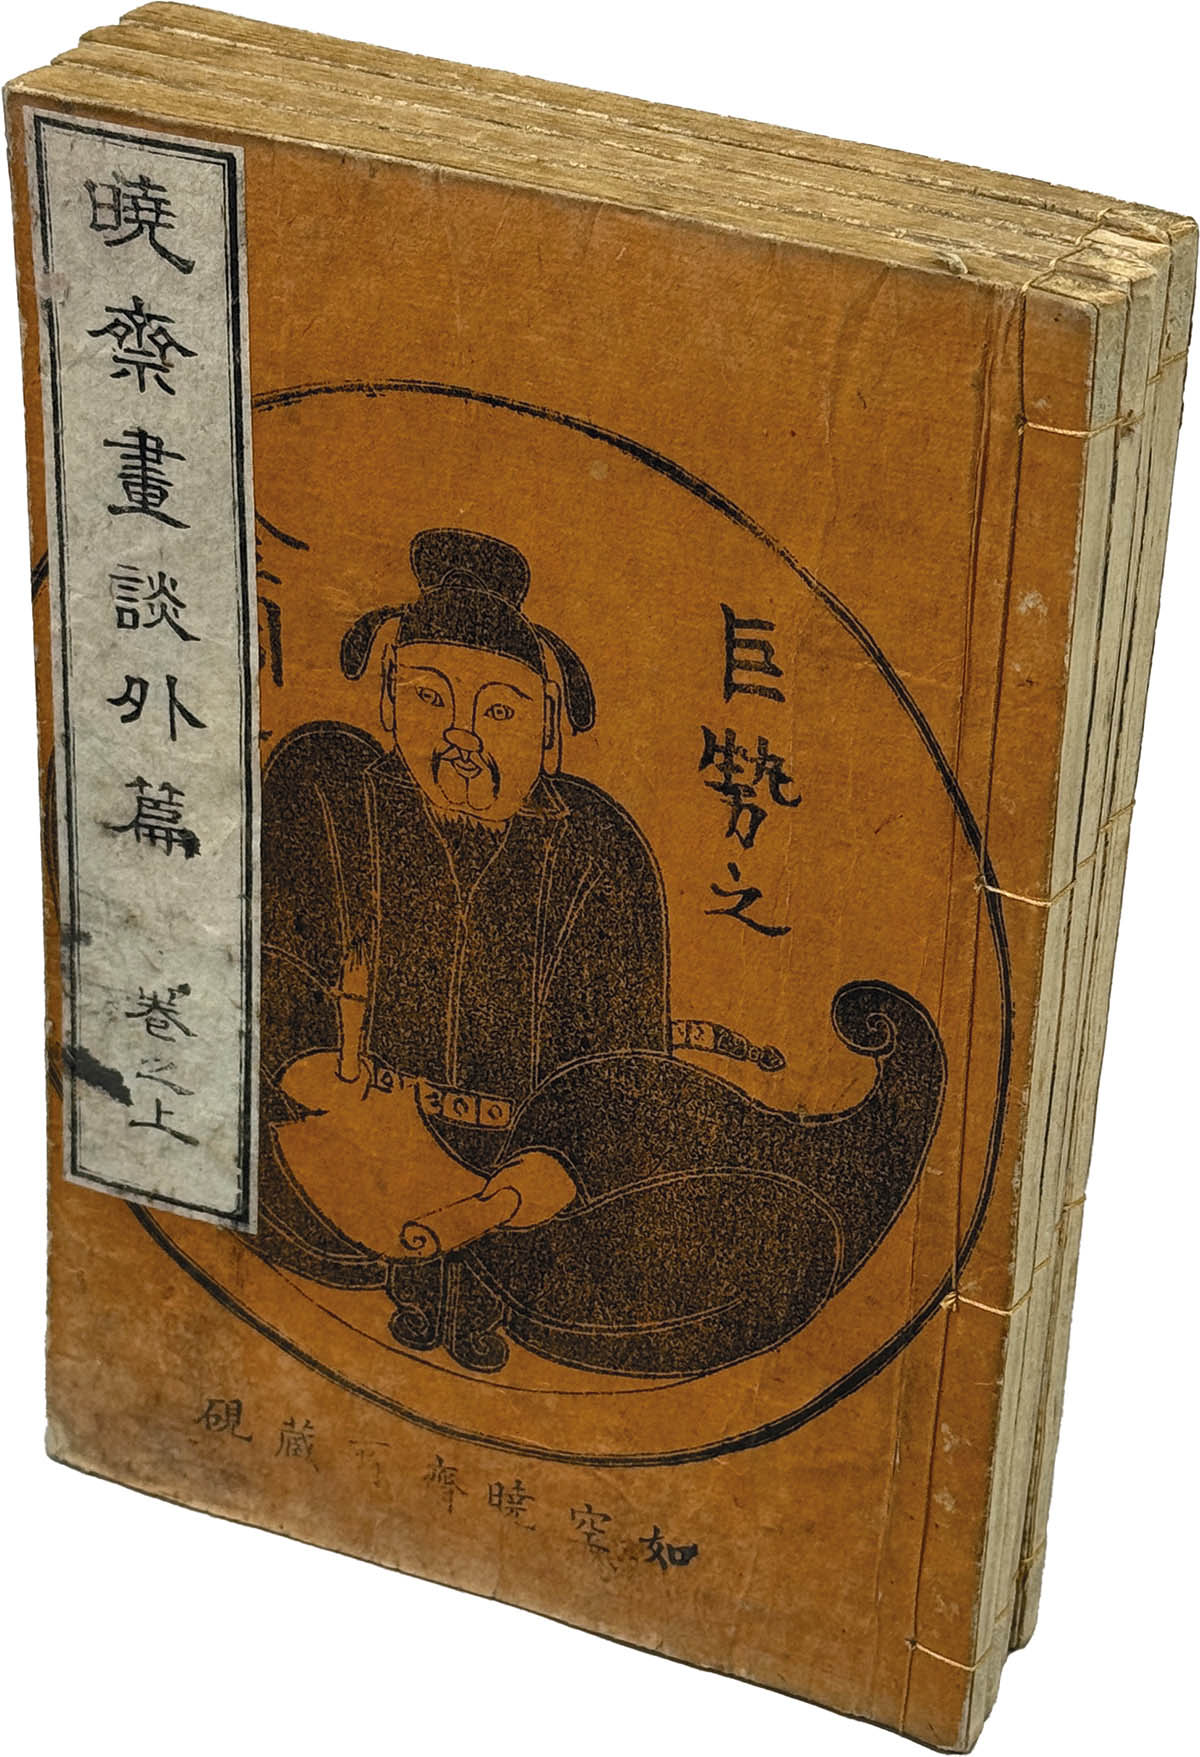 暁斎畫談外篇 巻之上
巨勢之
如空暁齊所蔵硯